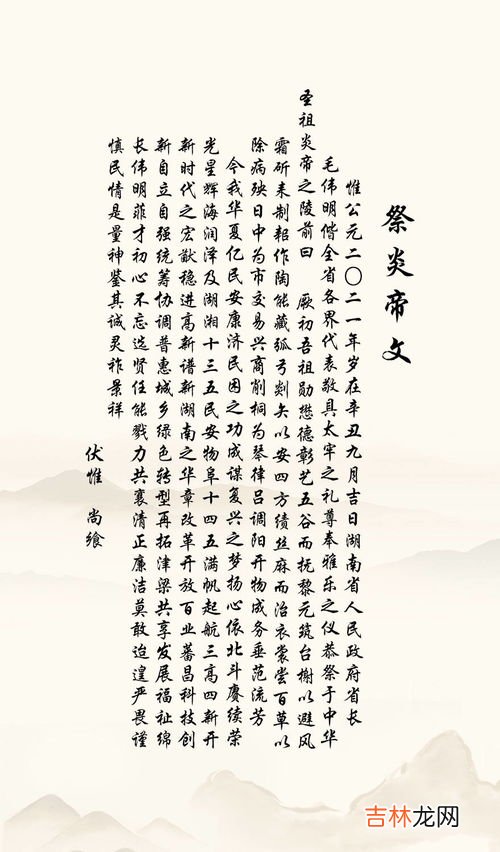 祭炎帝文
惟公元二〇二一年岁在辛丑九月吉日湖南省人民政府省长
毛伟明偕全省各界代表敬具太牢之礼尊奉雅乐之仪恭祭于中华
圣祖炎帝之陵前曰 厥初吾祖勋懋德彰艺五谷而抚黎元筑台榭以避风
霜斫耒制耜作陶能藏弧弓剡矢以安四方绩丝麻而治衣裳尝百草以
除病殃日中为市交易兴商削桐为琴律吕调阳开物成务垂范流芳
今我华夏亿民安康济民困之功成谋复兴之梦扬心依北斗赓续荣
光星辉海润泽及湖湘十三五民安物阜十四五满帆起航三高四新开
新时代之宏猷稳进高新谱新湖南之华章改革开放百业蕃昌科技创
新自立自强统筹协调普惠城乡绿色转型再拓津梁共享发展福祉绵
长伟明菲才初心不忘选贤任能戮力共襄清正廉洁莫敢迨遑严畏谨
慎民情是量神鉴其诚灵祚景祥
伏惟 尚飨
吉林龙网